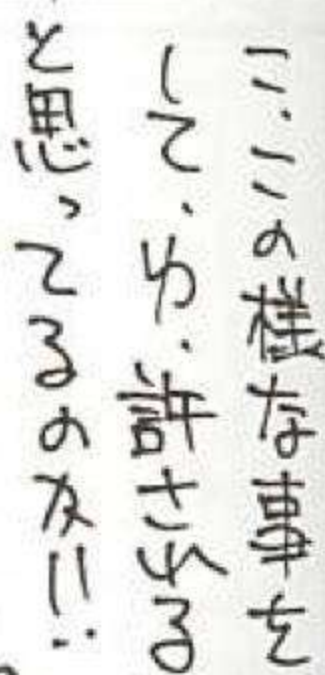 こ、この様な事を
して、ゆ、許される
と思ってるのか!!